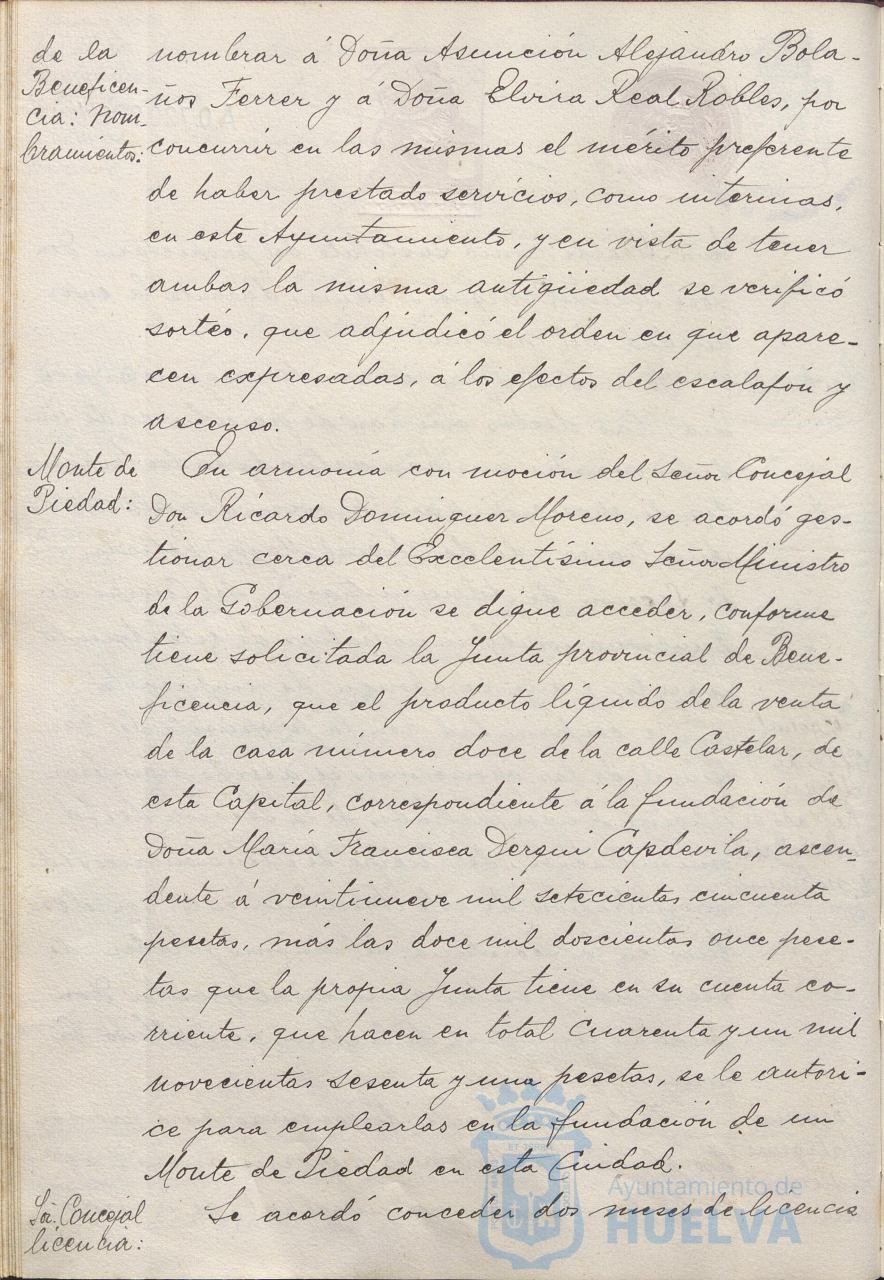 de la
Beneficen-
cia: Nom-
bramientos:
nombrar á Doña Asunción Alejandro Bola-
ños Ferrer y á Doña Elvira Real Robles, por
concurrir en las mismas el mérito preferente
de haber prestado servicios, como interinas,
en este Ayuntamiento, y en vista de tener
ambas la misma antigüedad se verificó
sortéo, que adjudicó el orden en que apare-
cen expresadas, á los efectos del escalafón y
ascenso.
Monte de
Piedad:
En armonía con moción del Señor Concejal
Don Ricardo Dominguez Moreno, se acordó ges-
tionar cerca del Excelentísimo Señor Ministro
de la Gobernación se digne acceder, conforme
tiene solicitada la Junta provincial de Bene-
ficencia, que el producto líquido de la venta
de la casa número doce de la calle Castelar, de
esta Capital, correspondiente á la fundación de
Doña María Francisca Derqui Capdevila, ascen-
dente á veintinueve mil setecientas cincuenta
pesetas, más las doce mil doscientas once pese-
tas que la propia Junta tiene en su cuenta co-
rriente, que hacen en total cuarenta y un mil
novecientas sesenta y una pesetas, se le autori-
ce para emplearlas en la fundación de un
Monte de Piedad en esta Ciudad.
Sr. Concejal
licencia:
Se acordó conceder dos meses de licencia
Ayuntamiento de
HUELVA